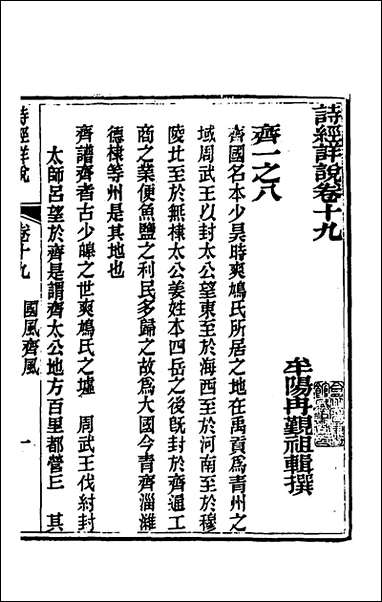 詩經詳說卷十九
牟陽冉覲祖輯撰
齊一之八
齊國名本少昊時爽鳩氏所居之地在禹貢爲青州之
域周武王以封太公望東至於海西至於河南至於穆
陵北至於無棣太公姜姓本四岳之後旣封於齊通工
商之業便魚鹽之利民多歸之故爲大國今青齊淄濰
德棣等州是其地也
齊譜齊者古少皞之世爽鳩氏之墟　周武王伐紂封
太師呂望於齊是謂齊太公地方百里都營丘　其
詩經詳說　卷十九　國風齊風　一